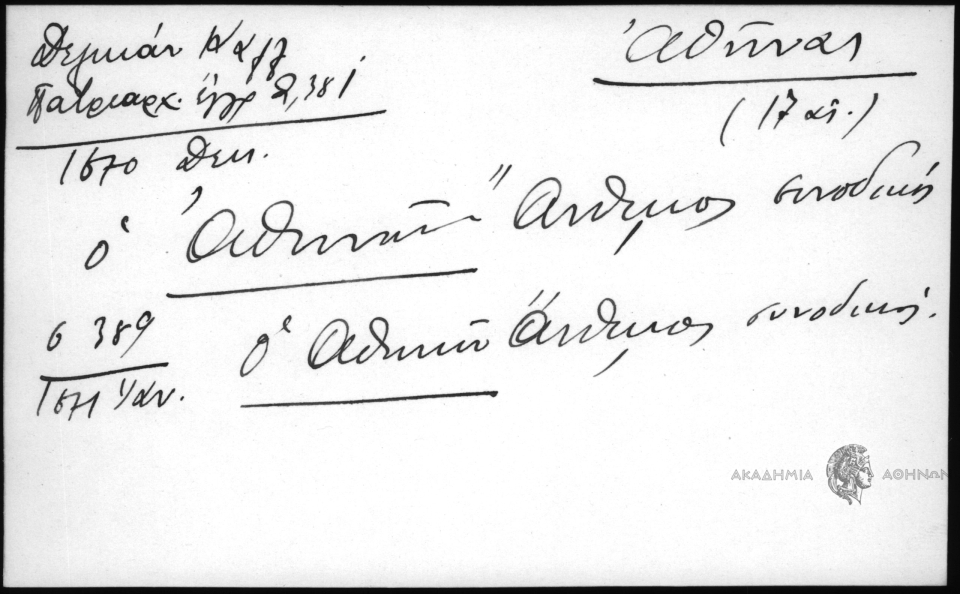 Δελικάν Καλλ
Πατριαρχ. ἔγγρ 2, 381
1670 Δεκ.
Ἀθήνας
(17 αἰ.)
ὁ Ἀθηνῶν Ἄνθιμος συνοδικῶς
σ 389
1671 Ἰαν.
ὁ Ἀθηνῶν Ἄνθιμος συνοδικῶς.
ΑΚΑΔΗΜΙΑ ΑΘΗΝΩΝ